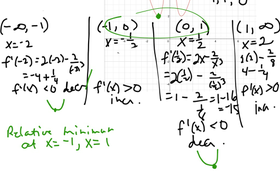 (-∞, -1)
x=-2
f'(-2)=2(-2)-2/(-2)³
=-4+1/4
f'(x)<0 decr
(-1, 0)
x=-1/2
f'(x)>0
inc.
(0, 1)
x=1/2
f'(½)=2x-2/x³
=2(½)-2/(½)³
=1-2/⅛=1-16
=-15
f'(x)<0
decr.
(1, ∞)
x=2
4-1/4
f'(x)>0
inc.
Relative minimum
at x=-1, x=1